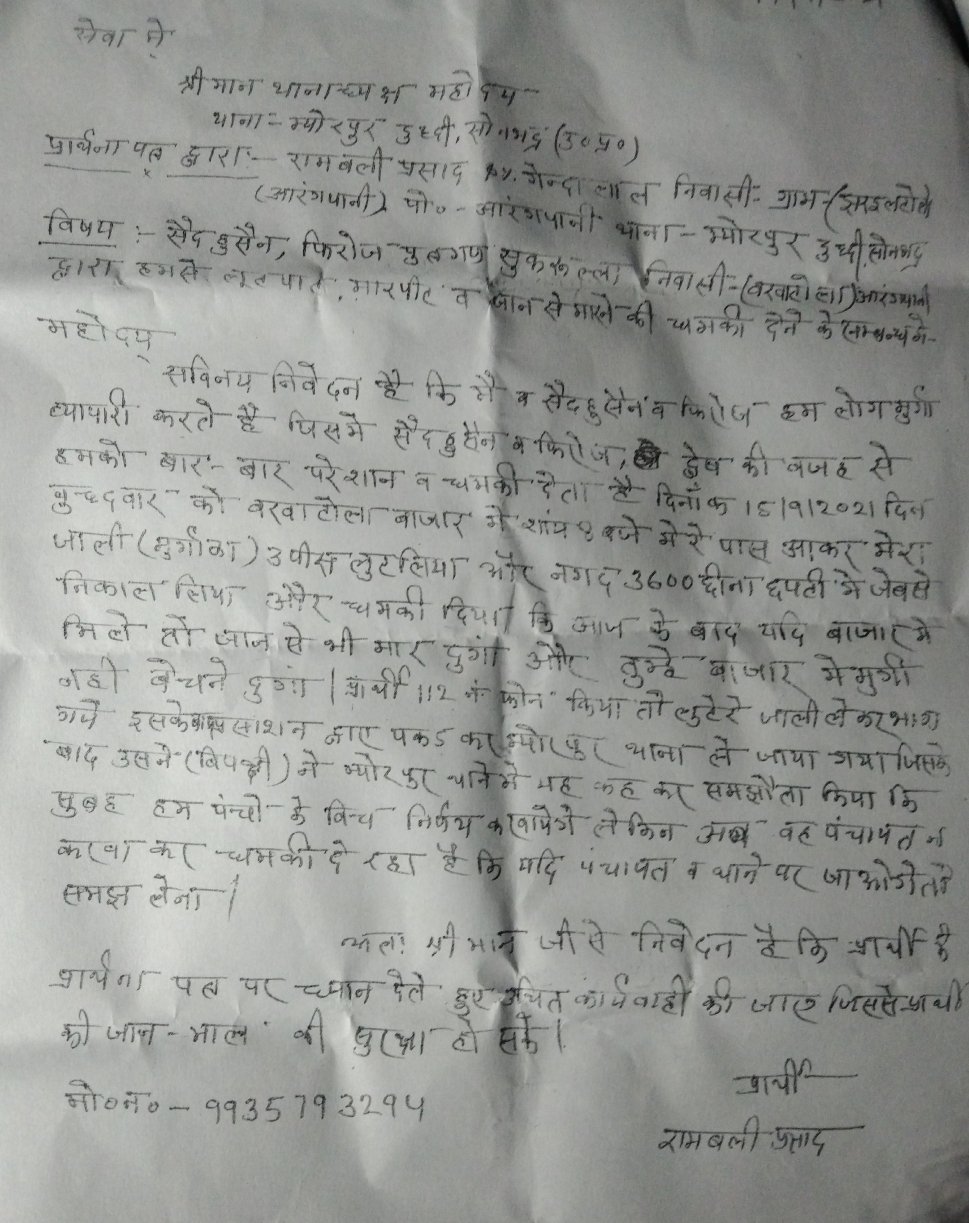 सेवा मे
श्रीमान थानाध्यक्ष महोदय
थाना - म्योरपुर दुध्दी, सोनभद्र (उ०प्र०)
प्रार्थना पत्र द्वारा :- रामबली प्रसाद S/. गेन्दा लाल निवासी- ग्राम-
(आरंगपानी) पो०- आरंगपानी थाना - म्योरपुर दुध्दी, सोनभद्र
विषय :- सैदहुसैन, फिरोज पुत्रगण निवासी- (बरवाटोला) आरंगपानी
द्वारा हमसे लूटपाट, मारपीट व जान से मारने की धमकी देने के सम्बन्ध मे-
महोदय्
सविनय निवेदन है कि मै व सैदहुसैन व फिरोज हम लोग मुर्गा
व्यापारी करते है जिसमे सैदहुसैन व फिरोज, द्वेष की वजह से
हमको बार - बार परेशान व धमकी देता है दिनाँक 15/9/2021 दिन
बुध्दवार को बरवाटोला बाजार मे शांय 8 बजे मेरे पास आकर मेरा
जाली (मुर्गावाला) 3 पीस लुट लिया और नगद 3600 छीना छपटी मे जेब से
निकाल लिया और धमकी दिया कि आज के बाद यदि बाजार मे
मिले तो जान से भी मार दुगां और तुम्हे बाजार मे मुर्गा
नही बेचने दुगां | प्रार्थी 112 नं फोन किया तो लुटेरे जाली लेकर भाग
गये इसके बाद पकड कर म्योरपुर थाना ले जाया गया जिसके
बाद उसने (विपक्षी) ने म्योरपुर थाने मे यह कह कर समझौता किया कि
सुबह हम पंन्चो के बिच निर्णय करवायेगे लेकिन अब वह पंचायत न
करवा कर धमकी दे रहा है कि यदि पंचायत व थाने पर जाओगे तो
समझ लेना |
अतः श्री मान जी से निवेदन है कि प्रार्थी के
प्रार्थना पत्र पर ध्यान देते हुए उचित कार्यवाही की जाए जिससे प्रार्थी
की जान - माल की सुरक्षा हो सके |
प्रार्थी
मो०न० - 9935793294
रामबली प्रसाद